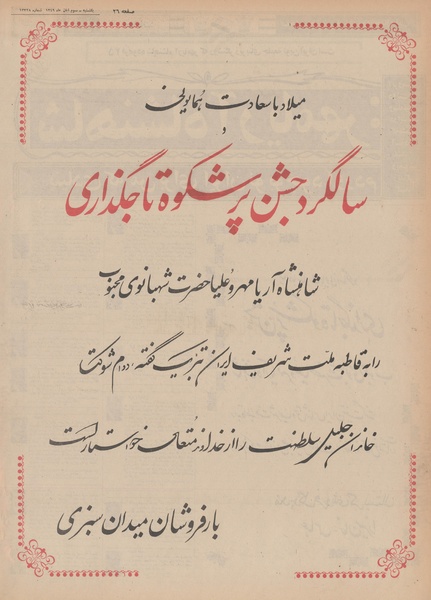 صفحه ۲۶
میلاد با سعادت همایونی
و
سالگرد جشن پر شکوه تاجگذاری
شاهنشاه آریامهر و علیا حضرت شهبانوی محبوب
را به قاطبه ملت شریف ایران تبریک گفته، دوام شوکت
خاندان جلیل سلطنت را از خداوند متعال خواستار است
بارفروشان میدان سبزی